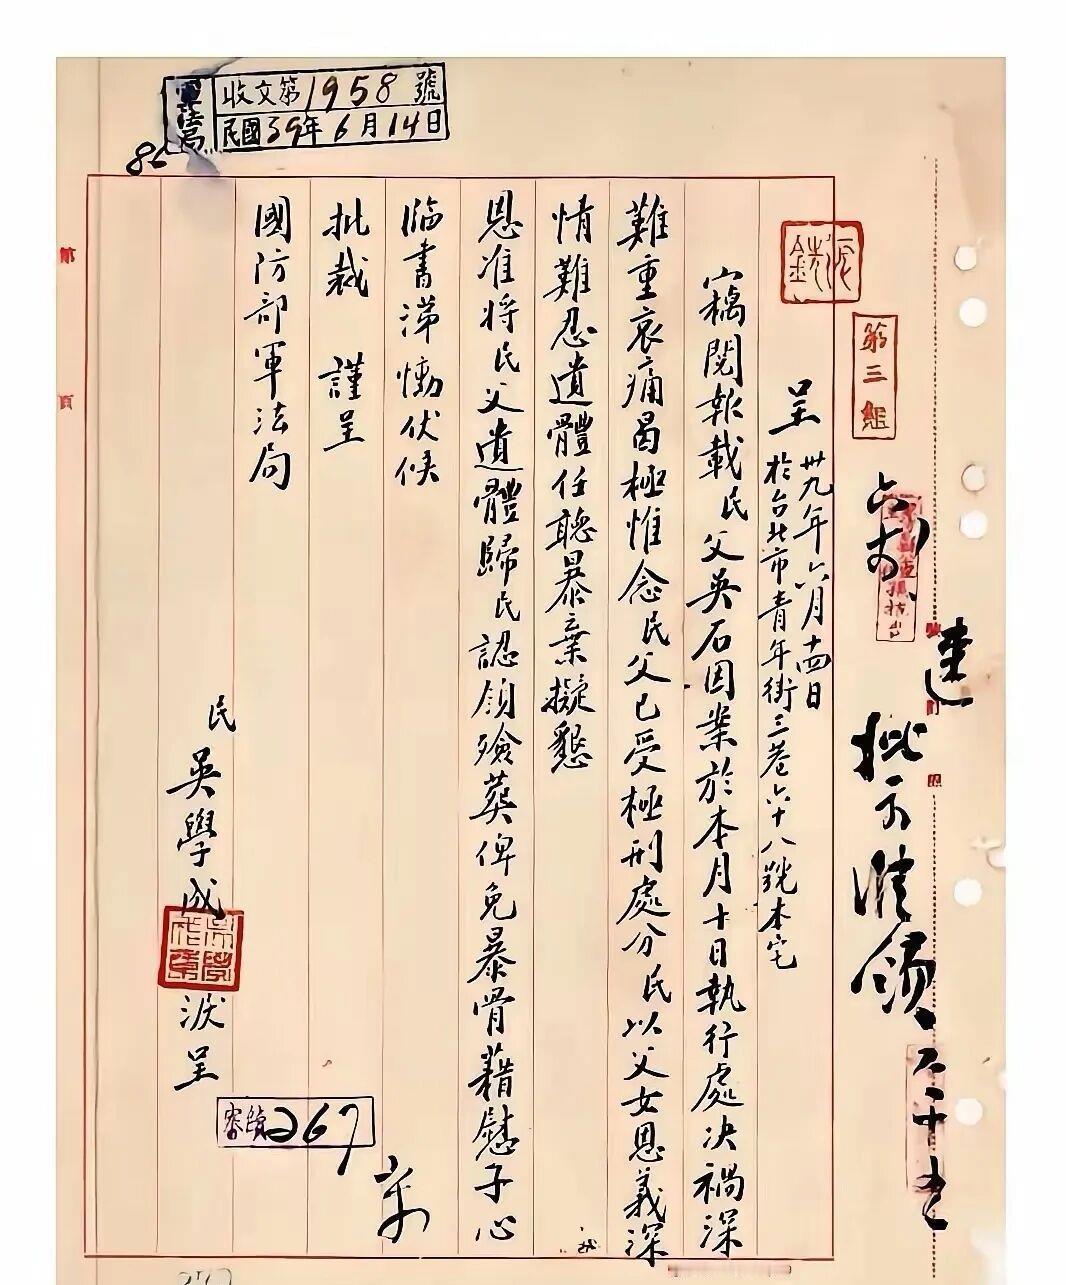 軍法局
收文第1958號
民國39年6月14日
86
第三組
呈 卅九年六月十四日
於台北市青年街三巷六十八號本宅
竊閱報載民父吳石因案於本月十日執行處決禍深
難重哀痛曷極惟念民父已受極刑處分民以父女恩義深
情難忍遺體任聽暴棄擬懇
恩准將民父遺體歸民認領殮葬俾免暴骨藉慰子心
臨書涕慟伏候
批裁 謹呈
國防部軍法局
民 吳學成 淚呈
267
批示准領
第 頁